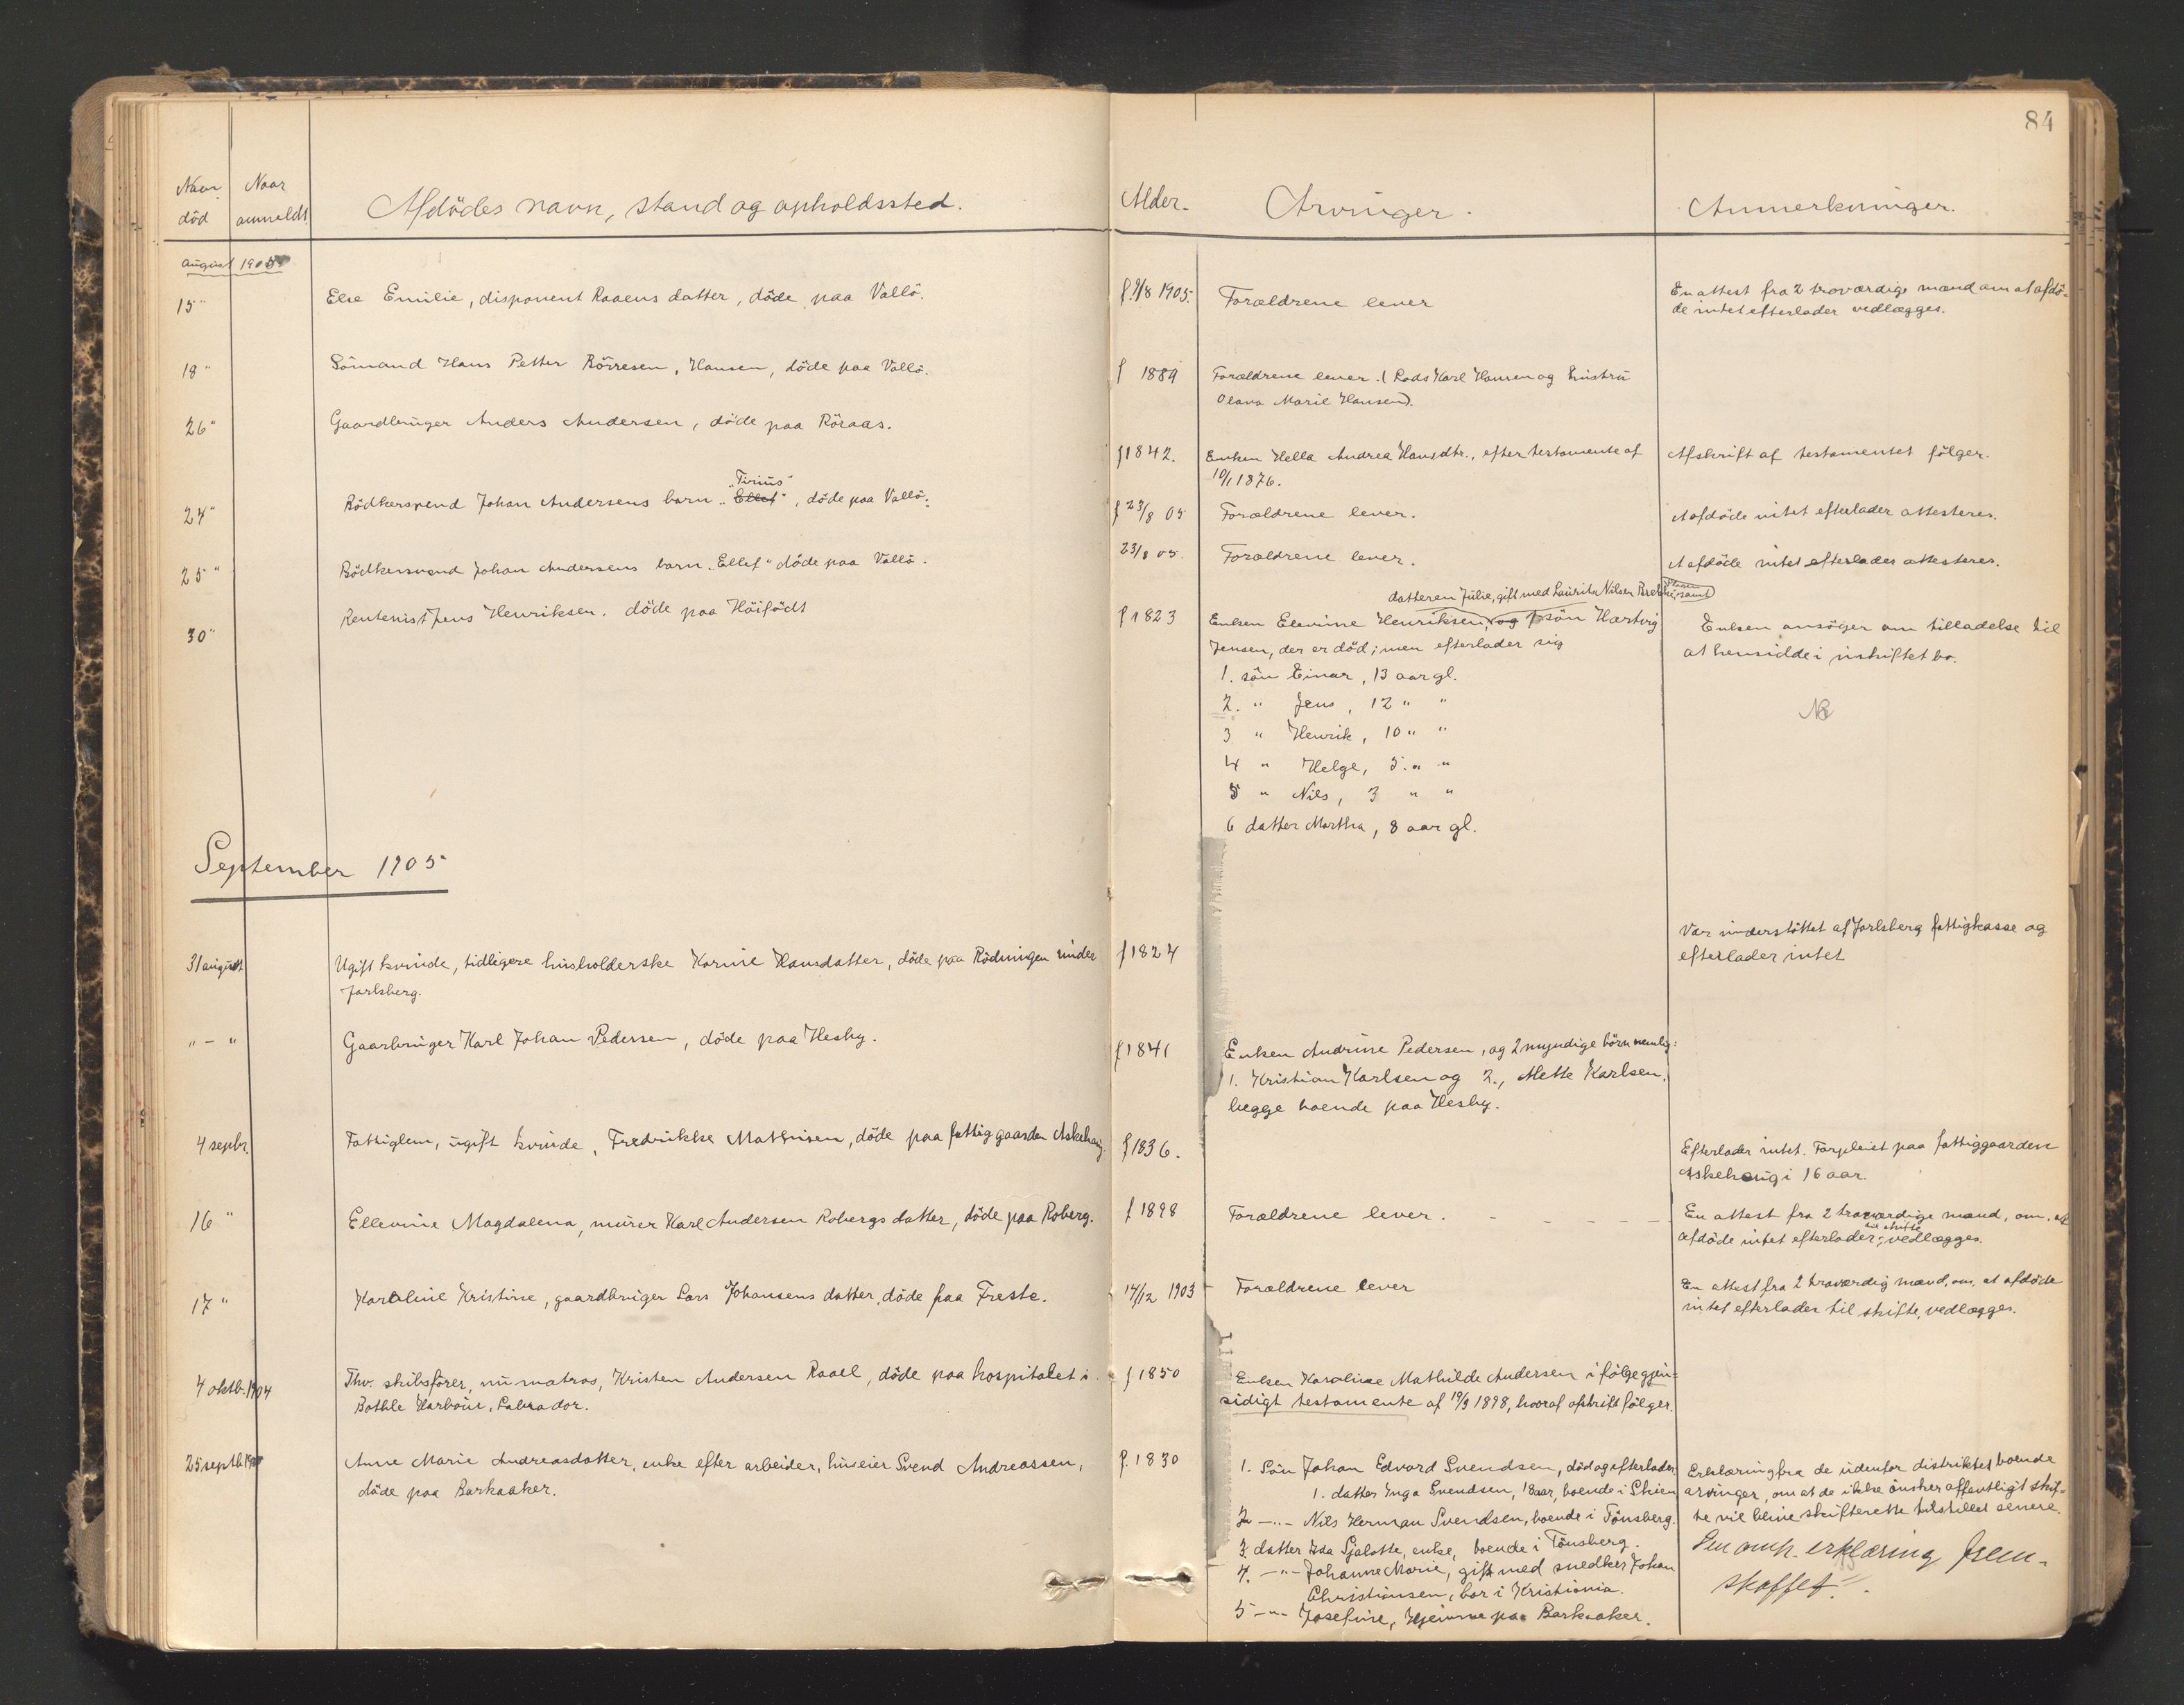 84
Naar død
Naar anmeldt
Afdödes navn, stand og opholdssted.
Alder.
Arvinger.
Anmerkninger.
August 1905
15"
Else Emilie, disponent Raaens datter, döde paa Vallö.
f 9/8 1905.
Forældrene lever
En attest fra 2 troværdige mænd om at afdö-
de intet efterlader vedlægges.
18"
Sömand Hans Petter Börresen, Hansen, döde paa Vallö.
f 1889
Forældrene lever. (Lods Karl Hansen og hustru
Olava Marie Hansen).
26"
Gaardbruger Anders Andersen, döde paa Röraas.
f 1842.
Enken Hella Andrea Hansdtr., efter testamente af
10/1 1876.
Afskrift af testamentet fölger.
"Tirius"
24"
Bödkersvend Johan Andersens barn "Ellef", döde paa Vallö.
f 23/8 05
Forældrene lever.
At afdöde intet efterlader attesteres.
25"
Bödkersvend Johan Andersens barn "Ellef" döde paa Vallö.
23/8 05.
Forældrene lever.
At afdöde intet efterlader attesteres.
30"
Rentenist Jens Henriksen. döde paa Höifödt
f 1823
datteren Julie, gift med Laurits Nilsen samt
Enken Elevine Henriksen, og 1 sön Hartvig
Jensen, der er död; men efterlader sig
1. sön Einar, 13 aar gl.
2. " Jens, 12 " "
3 " Henrik, 10 " "
4 " Helge, 5 " "
5 " Nils, 3 " "
6 datter Martha, 8 aar gl.
Enken ansöger om tilladelse til
at hensidde i uskiftet bo.
September 1905
31 august
Ugift kvinde, tidligere husholderske Karine Hansdatter, döde paa Rödningen under
Jarlsberg.
f 1824
Var understöttet af Jarlsberg fattigkasse og
efterlader intet
" - "
Gaarbruger Karl Johan Pedersen, döde paa Hesby.
f 1841
Enken Andrine Pedersen, og 2 myndige börn nemlig:
1. Kristian Karlsen og 2., Mette Karlsen,
begge boende paa Hesby.
4 sepbr.
Fattiglem, ugift kvinde, Fredrikke Mathisen, döde paa fattiggaarden Askehaug
f 1836.
Efterlader intet. Forpleiet paa fattiggaarden
Askehaug i 16 aar.
16 "
Ellevine Magdalena, murer Karl Andersen Robergs datter, döde paa Roberg.
f 1898
Forældrene lever. - - - - -
En attest fra 2 troværdige mænd, om, at
afdöde intet efterlader til skifte, vedlægges.
17 "
Karoline Kristine, gaardbruger Lars Johansens datter, döde paa Freste.
14/12 1903
Forældrene lever
En attest fra 2 troværdig mænd, om, at afdöde
intet efterlader til skifte, vedlægges.
4 oktb. 1904
Fhv. skibsförer, nu matros, Kristen Andersen Raael, döde paa hospitalet i
Battle Harbour, Labrador.
f 1850
Enken Karoline Mathilde Andersen i fölge gjen-
sidigt testamente af 19/9 1898, hvoraf afskrift fölger.
25 septb
Anne Marie Andreasdatter, enke efter arbeider, huseier Svend Andreassen,
döde paa Barkaaker.
f. 1830
1. Sön Johan Edvard Svendsen, död og efterlader
1. datter Inga Svendsen, 18 aar, boende i Skien
2 -"- Nils Herman Svendsen, boende i Tönsberg.
3. datter Ida Sjalotte, enke, boende i Tönsberg.
4. -"- Johanne Marie, gift med snedker Johan
Christiansen, bor i Kristiania.
5 -"- Josefine, Hjemme paa Barkaaker.
Erklæring fra de udenfor distriktet boende
arvinger, om at de ikke önsker offentligt skif-
te vil blive skifteretten tilstillet senere.
Den omh. erklæring frem-
skaffet.